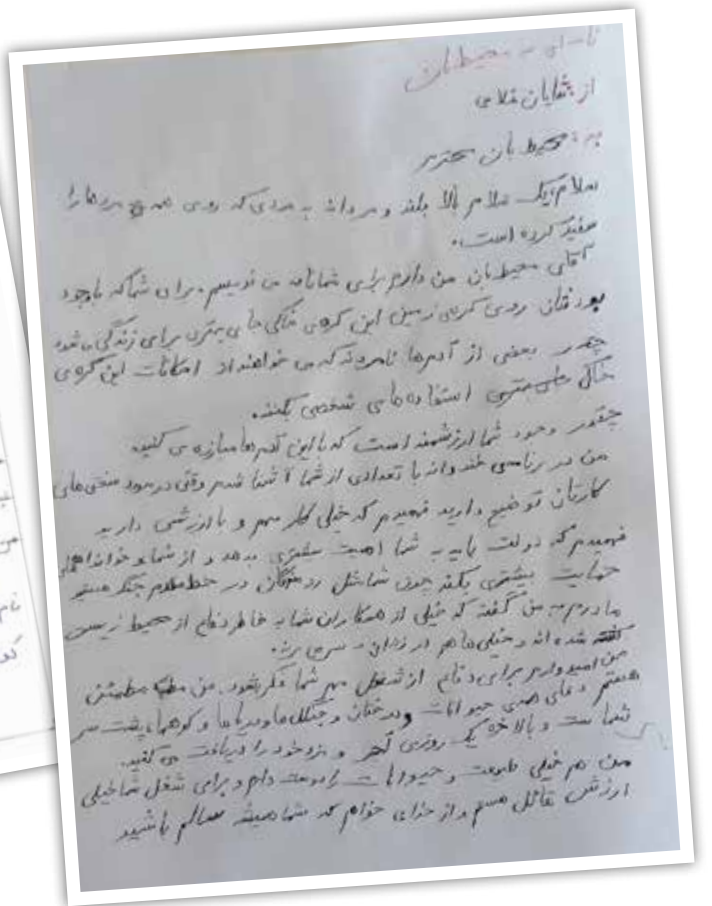 نامه‌ای به محیط بان
از: شایان غلامی
به: محیط بان محترم
سلام، یک سلام بالا بلند و مردانه به مردی که روی همه مردها را
سفید کرده است.
آقای محیط بان من دارم برای شما نامه می نویسم. برای شما که با وجود
بودنتان روی کره‌ی زمین این کره‌ی خاکی جای بهتری برای زندگی می شود
چقدر بعضی از آدم‌ها نامردند که می خواهند از امکانات این کره‌ی
خاکی استفاده‌های شخصی بکنند.
چقدر وجود شما ارزشمند است که با این آدم‌ها مبارزه می کنید.
من در برنامه‌ی خندوانه با تعدادی از شما آشنا شدم وقتی در مورد سختی‌های
کارتان توضیح دادید فهمیدم که خیلی کار مهم و با ارزشی دارید
فهمیدم که دولت باید به شما اهمیت بیشتری بدهد و از شما و خانواده‌های
حمایت بیشتری بکند چون شما مثل رزمندگان در خط مقدم جنگ هستید
مادرم به من گفته که خیلی از همکاران شما به خاطر دفاع از محیط زیست
کشته شده اند و خیلی ها هم در زندان به سر می برند.
من امیدوارم برای دفاع از شغل مهم شما فکر بشود. من مطمئن
هستم دعای همه‌ی حیوانات و درختان و جنگل‌ها و دریاها و کوه‌ها پشت سر
شما ست و بالاخره یک روزی اجر و مزد خود را دریافت می کنید.
من هم خیلی طبیعت و حیوانات را دوست دارم و برای شغل شما خیلی
ارزش قائل هستم و از خدا می خواهم که شما همیشه سالم باشید